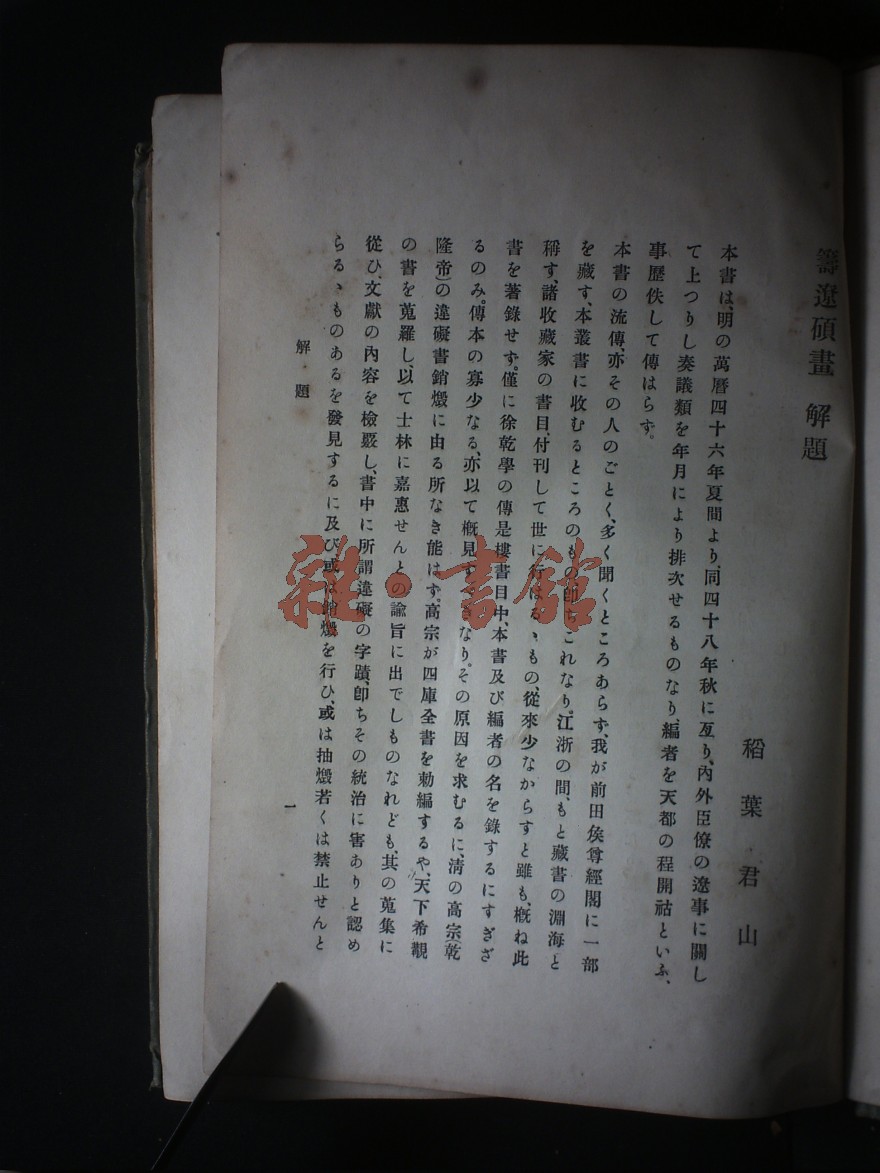 籌遼碩畫 解題
稻葉君山
本書は、明の萬曆四十六年夏間より、同四十八年秋に亙り、內外臣僚の遼事に關し
て上つりし奏議類を年月により排次せるものなり、編者を天都の程開祜といふ、
事歷佚して傳はらず。
本書の流傳、亦その人のごとく、多く聞くところあらず、我が前田侯尊經閣に一部
を藏す、本叢書に收むるところのもの卽ちこれなり。江浙の間、もと藏書の淵海と
稱す、諸收藏家の書目、付刊して世に行はるゝもの、從來少なからずと雖も、槪ね此
書を著錄せず。僅に徐乾學の傳是樓書目中、本書及び編者の名を錄するにすぎざ
るのみ。傳本の寡少なる、亦以て槪見すべきなり。その原因を求むるに、淸の高宗(乾
隆帝)の違礙書銷燬に由る所なき能はず。高宗が四庫全書を勅編するや、天下希覯
の書を蒐羅し、以て士林に嘉惠せんとの諭旨に出でしものなれども、其の蒐集に
從ひ、文獻の內容を檢覈し、書中に所謂違礙の字蹟、卽ちその統治に害ありと認め
らるゝものあるを發見するに及び、或は銷燬を行ひ、或は抽燬若くは禁止せんと
解題
一
雜·書館